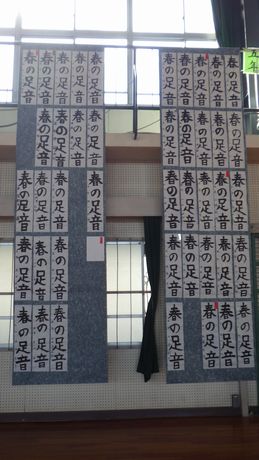 五年
春の足音
春の足音
春の足音
春の足音
春の足音
春の足音
春の足音
春の足音
春の足音
春の足音
春の足音
春の足音
春の足音
春の足音
春の足音
春の足音
春の足音
春の足音
春の足音
春の足音
春の足音
春の足音
春の足音
春の足音
春の足音
春の足音
春の足音
春の足音
春の足音
春の足音
春の足音
春の足音
春の足音
春の足音
春の足音
春の足音
春の足音
春の足音
春の足音
春の足音
春の足音
春の足音